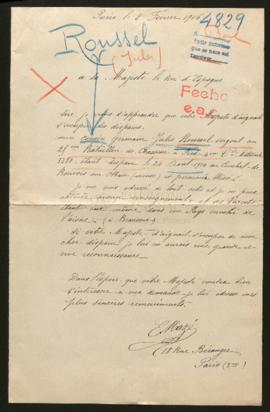 Paris le 8 Février 1916
4829
Roussel
(Jules)
a Sa Majesté le Roi d'Espagne
Fecho
e.a.
Sire je viens d'apprendre que votre Majesté daignait
s'occuper des disparus.
mon Cousin Germain Jules Roussel sergent au
Bataillon de Chasseurs à Pied
étant disparu le 24 Août 1914 au Combat de
je me suis adressé de tout côté et je ne peux
obtenir aucun renseignement et ses Parents
sont eux même dans un Pays envahi de
l'aisne
Si votre Majesté daignait s'occuper de mon
cher disparu je lui en aurais une grande et
vive reconnaissance.
Dans l'espoir que votre Majesté voudra bien
s'intéresser à ma demande je lui adresse mes
plus sincères remerciements.
E. Mazé
18 Rue Béranger
Paris (3me)